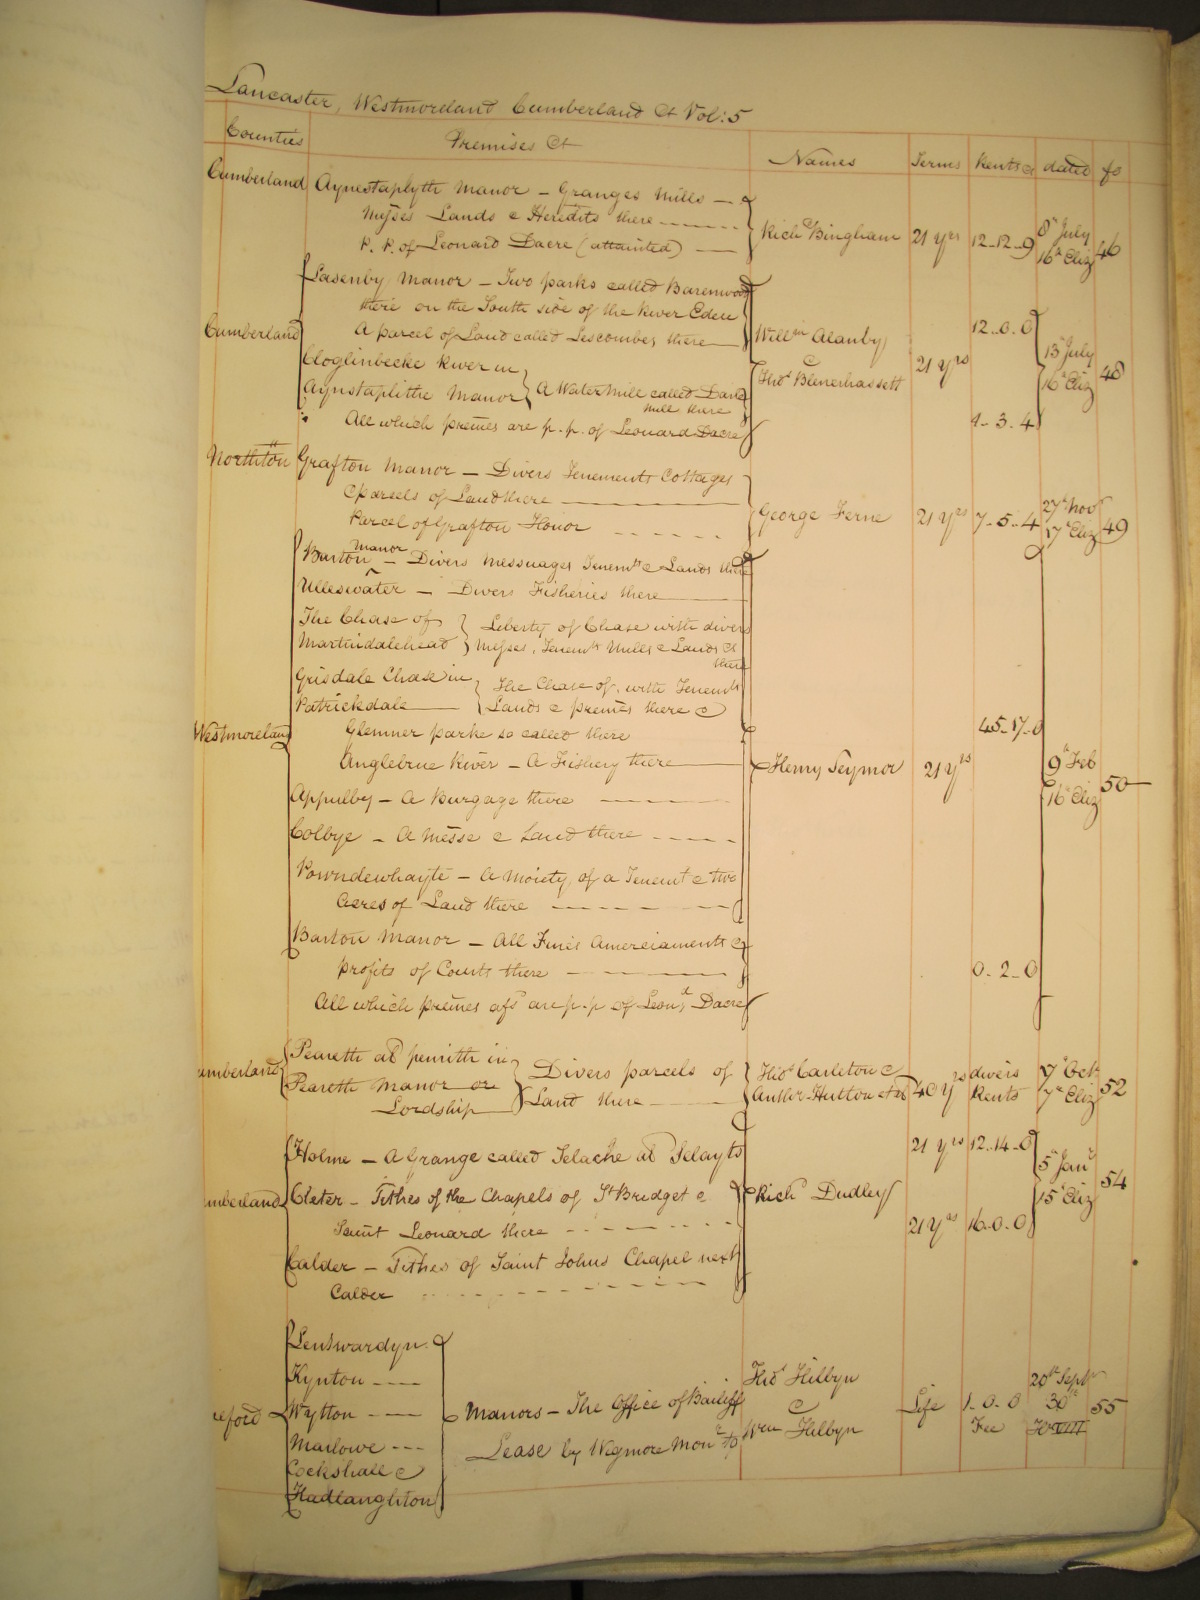 Lancaster, Westmoreland Cumberland &c Vol: 5
Counties Premises &c Names Terms Rents &c dated fo
Cumberland Aynestaplyth Manor — Granges Mills —
Messes Lands & Heredits there
P. P. of Leonard Dacre (attainted) —
Richd Bingham 21 yrs 12..12..9 8th July 16th Eliz 46
Cumberland Lasenby Manor — Two parks called Barenwood
there on the South side of the River Eden
A parcel of Land called Lescombes there
Cloglinbecke River in
Aynstaplithe Manor A Water Mill called Dane
Mill there
All which premes are p. p. of Leonard Dacre
Willm Alanby
&
Thos Blenerhassett
21 yrs 12..0..0
4..3..4
13th July 16th Eliz 48
Northton Grafton Manor — Divers Tenements Cottages
& parcels of Land there
Parcel of Grafton Honor
George Ferne 21 yrs 7..5..4 27th Nov 17th Eliz 49
Westmoreland Barton Manor — Divers Messuages Tenemts & Lands there
Ulleswater — Divers Fisheries there
The Chase of Martindalehead Liberty of Chase with divers
Messes, Tenemts Mills & Lands &c
there
Grisdale Chase in The Chase of, with Tenemts
Patrickdale Lands & premes there &
Glemner parke so called there
Anglebrue River — A Fishery there
Appulby — A Burgage there
Colbye — A Messe & Land there
Powndewhayte — A Moiety of a Tenemt & two
Acres of Land there
Barton Manor — All Fines Amerciaments &
profits of Courts there
All which premes afs are p. p of Leond Dacre
Henry Seymor 21 yrs 45..17..0
0..2..0
9th Feb 16th Eliz 50
umberland Peareth als penrith in
Peareth Manor or
Lordship
Divers parcels of
Land there
Thos Carleton &
Anthr Hutton
40 yrs divers Rents 7th Octr 7th Eliz 52
umberland Holme — A Grange called Selache als Selayts
Cleter — Tithes of the Chapels of St Bridget &
Saint Leonard there
Calder — Tithes of Saint Johns Chapel next
Calder
Richd Dudley
21 yrs 12..14..0
21 yrs 16..0..0
5th Jany 15th Eliz 54
reford Lentwardyn
Kynton
Wytton
Marlowe
Cockshall &
Hadlaughton
Manors — The Office of Bailiff
Lease by Wigmore Monry
Thos Hilbyn
&
Wm Hilbyn
Life 1..0..0
Fee
20th Septr
30th
H VIII
55